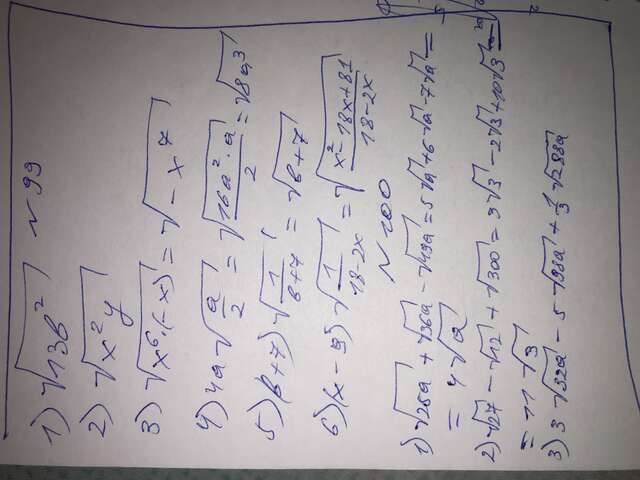 № 99
1) √13b²
2) √x²y
3) √x⁶·(-x) = √-x⁷
4) 4a √a/2 = √16a²·a/2 = √8a³
5) (b+7) √1/b+7 = √b+7
6) (x-9) √1/18-2x = √x²-18x+81/18-2x
№ 100
1) √25a + √36a - √49a = 5√a + 6√a - 7√a =
= 4√a
2) √27 - √12 + √300 = 3√3 - 2√3 + 10√3 =
= 11√3
3) 3√32a - 5√98a + 1/3√288a